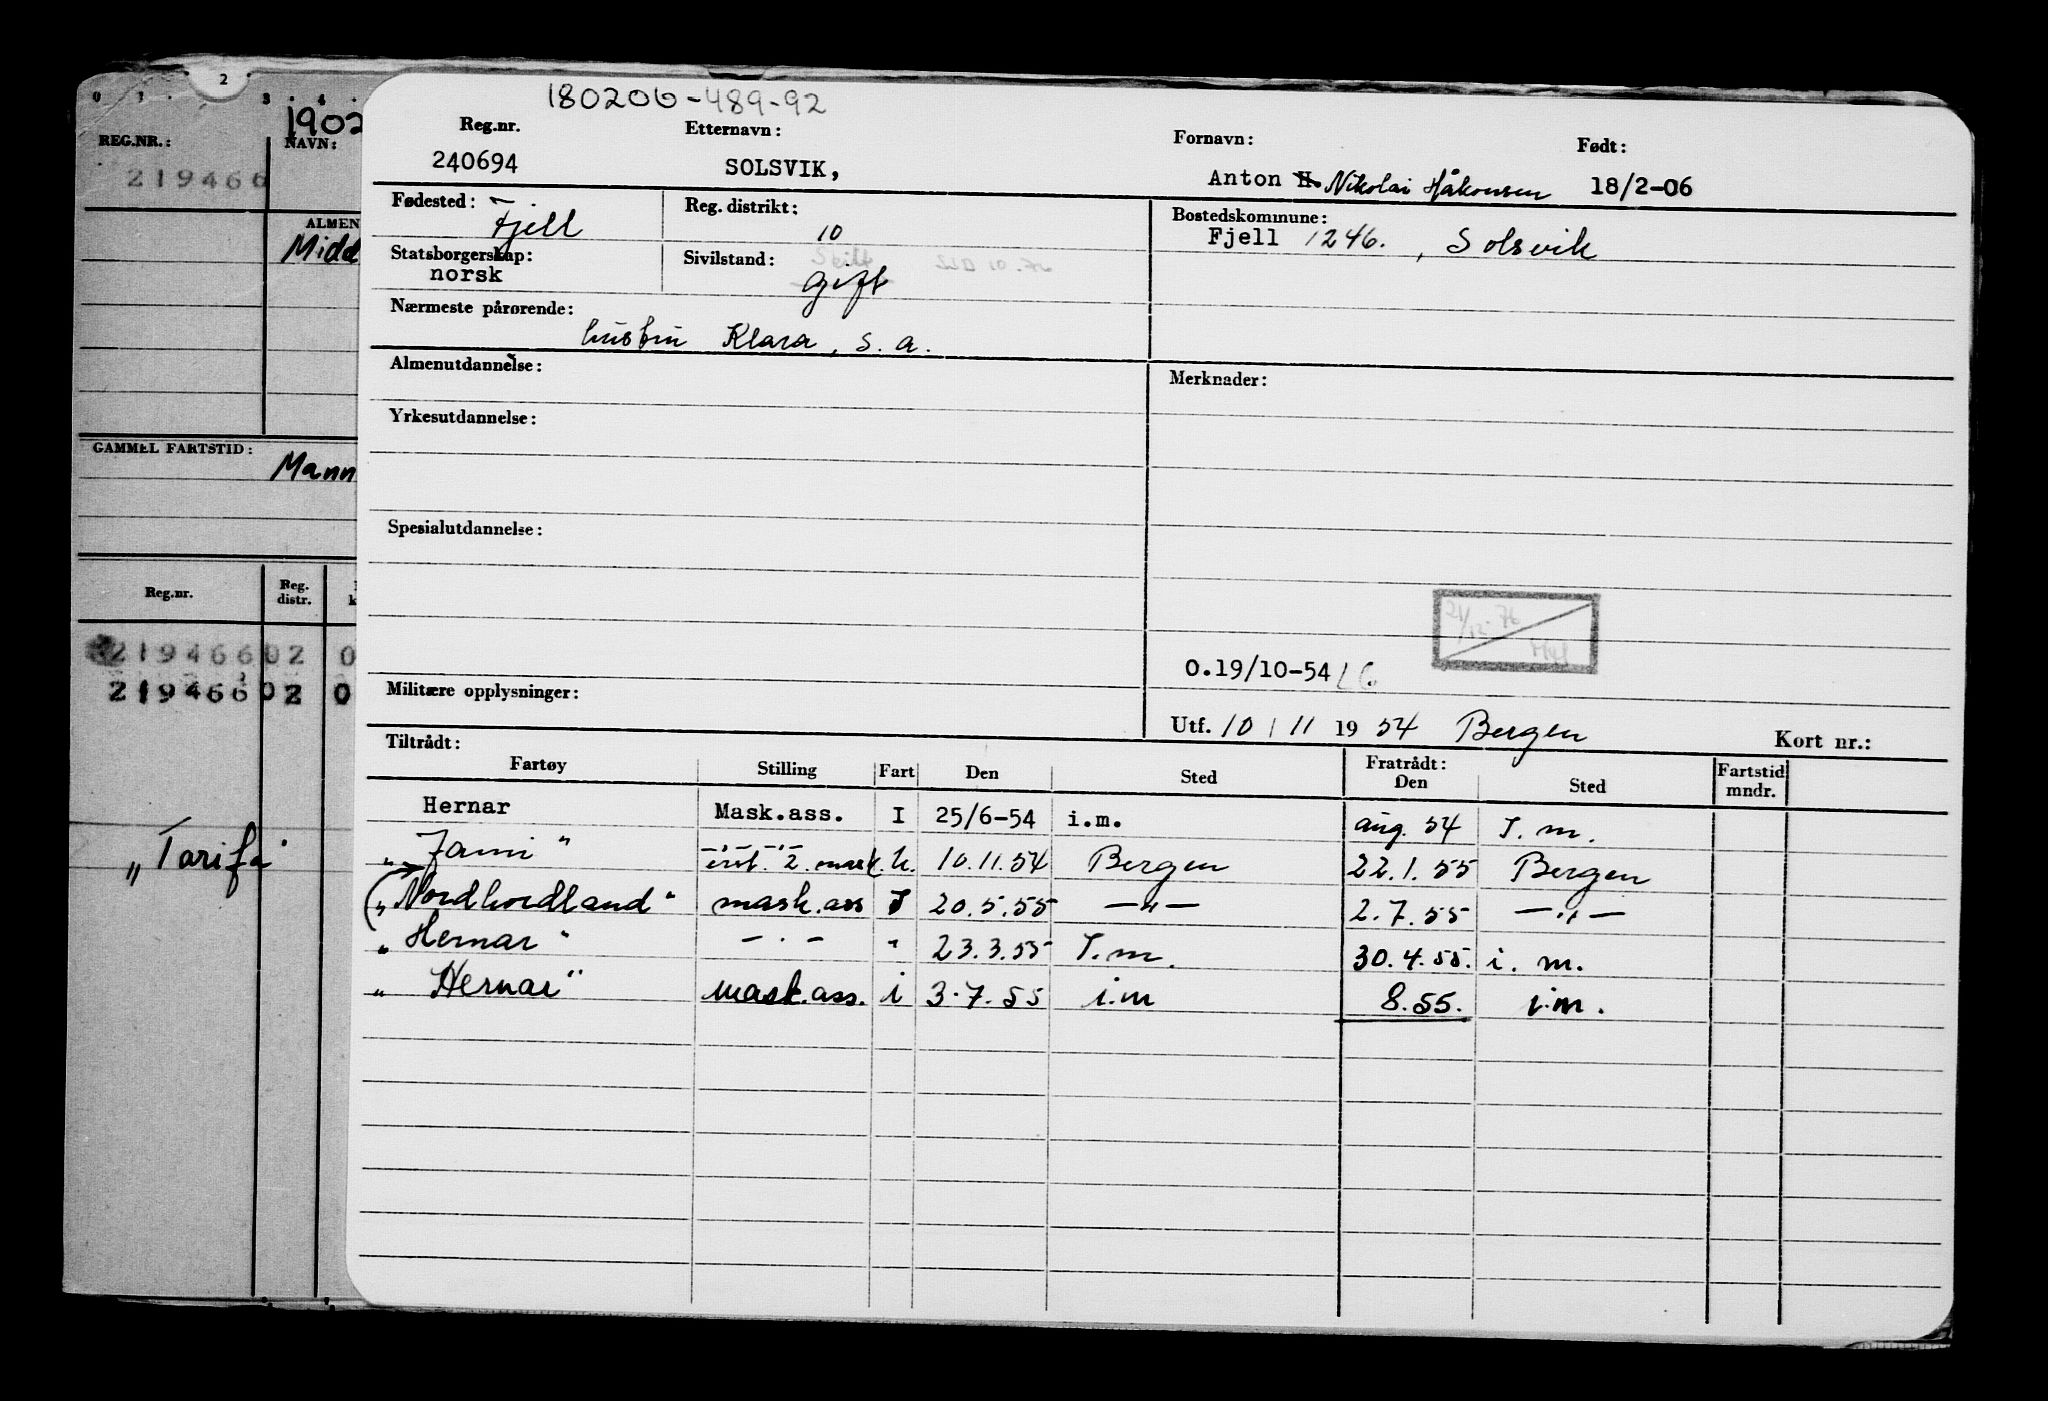 2
0 1 . 3 . 4 .
1902
REG.NR.:
NAVN:
219466
ALMEN
Midd
GAMMEL FARTSTID:
Mann
Reg.nr.
Reg. distr.
219466 02 0
219466 02 0
"Tarifa"
180206-489-92
Reg.nr.
Etternavn:
Fornavn:
Født:
240694
SOLSVIK,
Anton H. Nikolai Håkonsen
18/2-06
Fødested: Fjell
Reg. distrikt: 10
Bostedskommune:
Fjell 1246. , Solsvik
Statsborgerskap:
norsk
Sivilstand: Skilt 10.76
gift
Nærmeste pårørende:
hustru Klara, s. a.
Almenutdannelse:
Merknader:
Yrkesutdannelse:
Spesialutdannelse:
21/12-76
0.19/10-54
Militære opplysninger:
Utf. 10 / 11 1954 Bergen
Kort nr.:
Tiltrådt:
Fratrådt:
Fartøy Stilling Fart Den Sted Den Sted Fartstid mndr.
Hernar Mask.ass. I 25/6-54 i.m. aug. 54 I.m.
-"-"- 2. mask. u. 10.11.54 Bergen 22.1.55 Bergen
"Nordhordland" mask.ass I 20.5.55 -"- 2.7.55 -"-
"Hernar" -"- " 23.3.55 I.m. 30.4.55. i.m.
"Hernar" mask.ass. i 3.7.55 i.m 8.55. i.m.